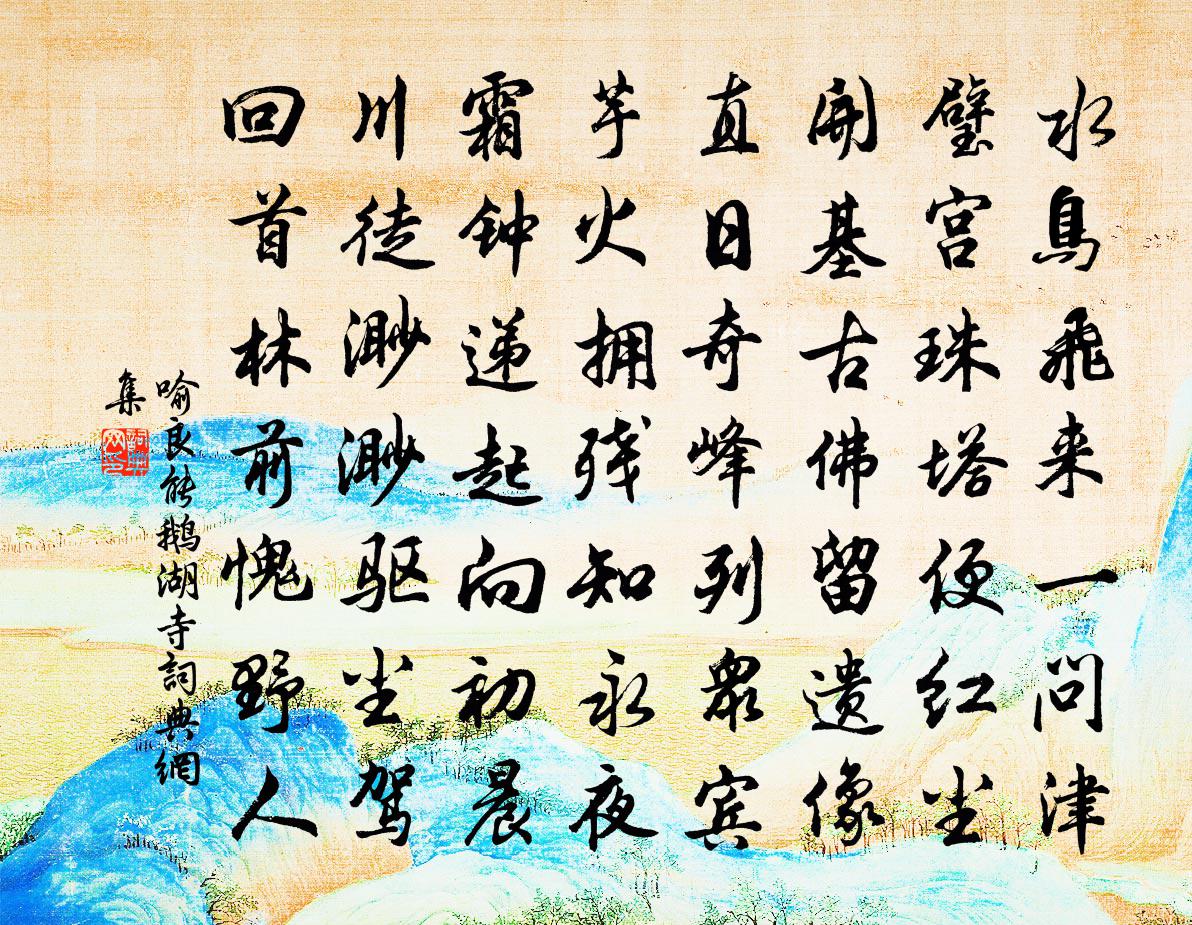 水鳥飛来一问津
璧宫珠塔便红尘
開基古佛留遗像
直日奇峰列衆宾
芋火拥残知永夜
霜钟递起向初晨
川徒渺渺驱尘驾
回首林前愧野人
喻良能鹅湖寺詞典網
集